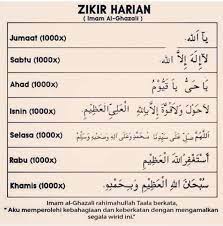 ZIKIR HARIAN
( Imam Al-Ghazali )
Jumaat (1000x) يَا اَللّٰه
Sabtu (1000x) لَا إِلٰهَ إِلَّا اللّٰه
Ahad (1000x) يَا حَيُّ يَا قَيُّوْمُ
Isnin (1000x) لَا حَوْلَ وَلَا قُوَّةَ إِلَّا بِاللّٰهِ الْعَلِيِّ الْعَظِيْمِ
Selasa (1000x)
Rabu (1000x) أَسْتَغْفِرُ اللّٰهَ الْعَظِيْمَ
Khamis (1000x) سُبْحَانَ اللّٰهِ الْعَظِيْمِ وَبِحَمْدِهِ
Imam al-Ghazali rahimahullah Taala berkata,
" Aku memperolehi kebahagiaan dan keberkatan dengan mengamalkan
segala wirid ini."